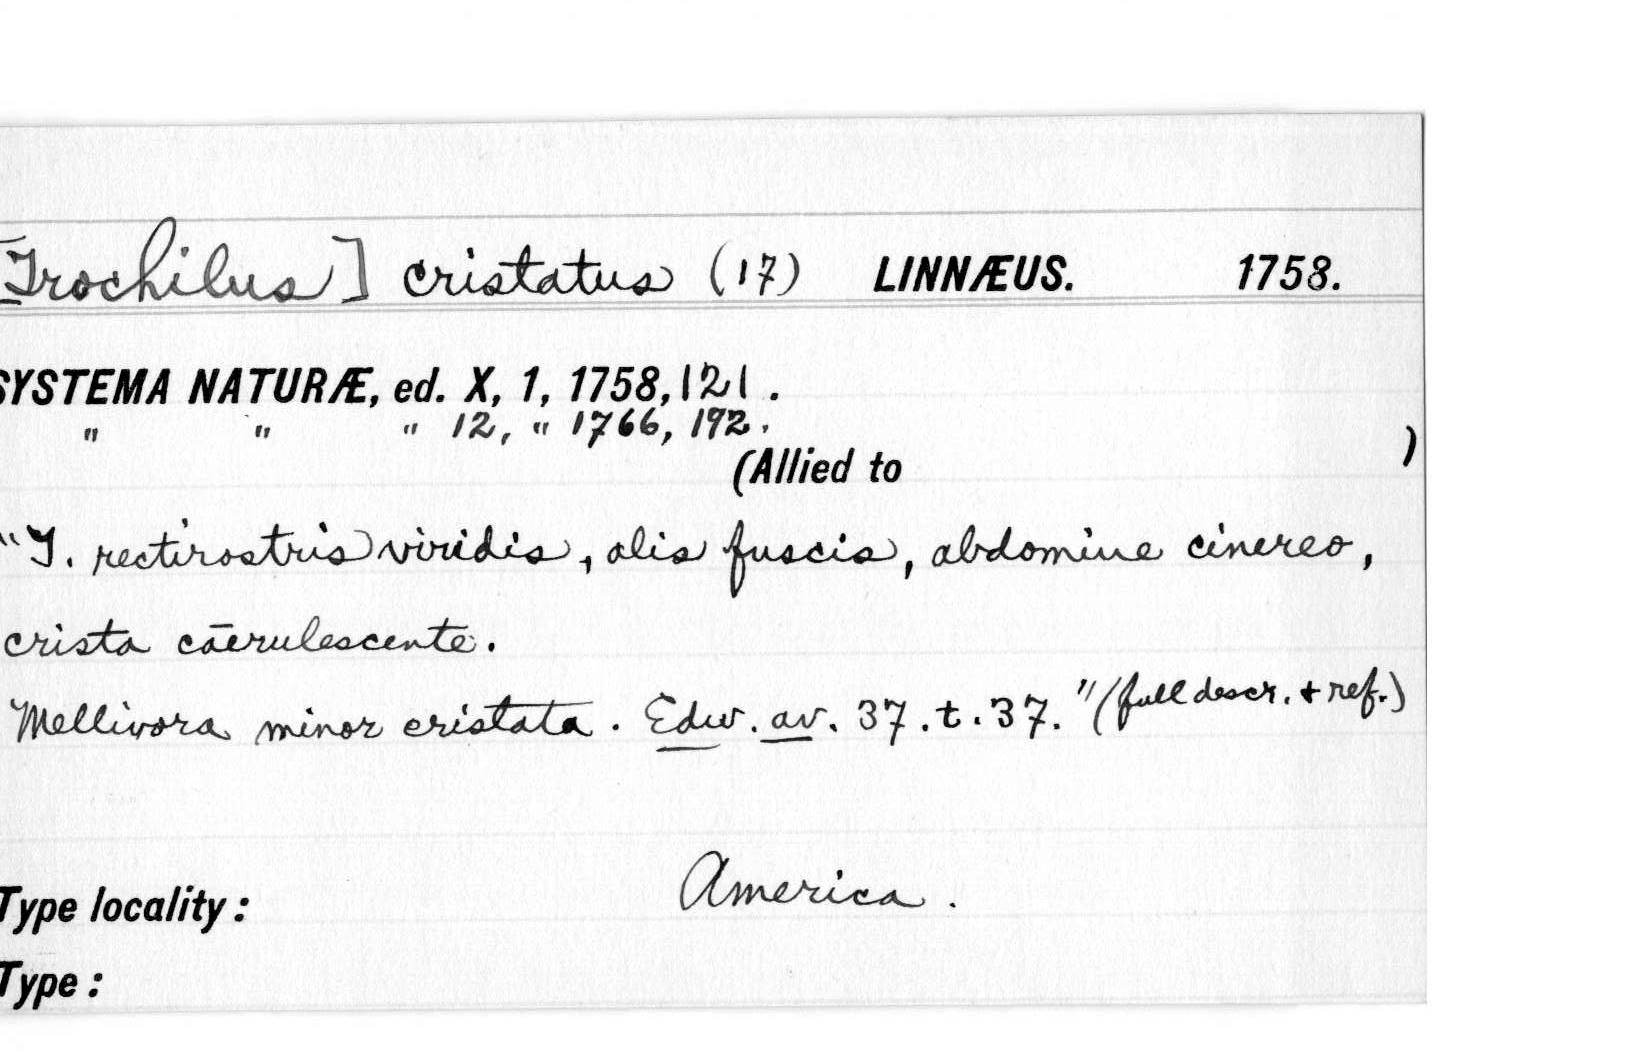 [Trochilus] cristatus (17) LINNÆUS. 1758.
SYSTEMA NATURÆ, ed. X, 1, 1758, 121.
" " " 12, " 1766, 192.
(Allied to )
"T. rectirostris viridis, alis fuscis, abdomine cinereo,
crista cāerulescente.
Mellivora minor cristata. Edw. av. 37. t. 37." (full descr. + ref.)
Type locality: America.
Type: